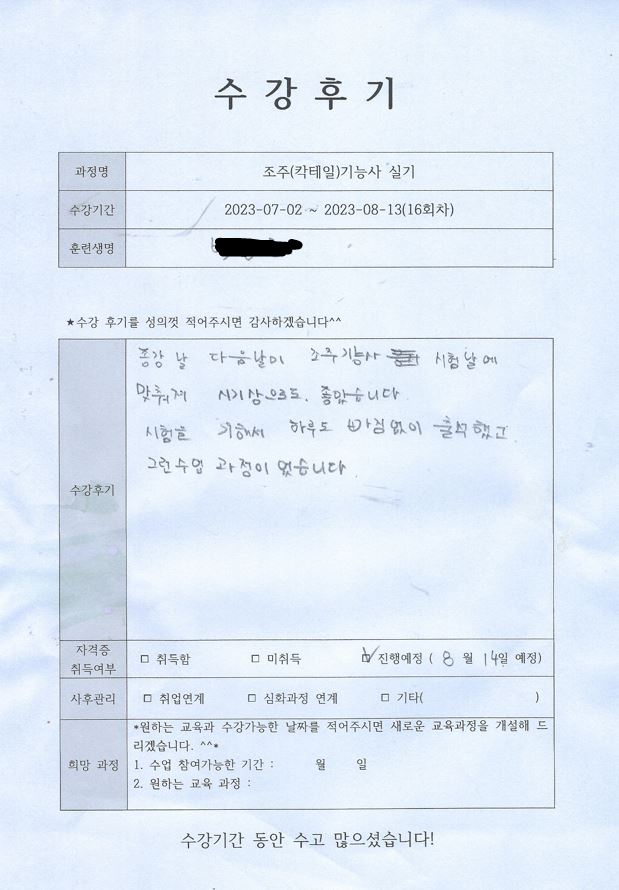 수강후기
과정명 조주(칵테일)기능사 실기
수강기간 2023-07-02 ~ 2023-08-13(16회차)
훈련생명
★수강 후기를 성의껏 적어주시면 감사하겠습니다^^
수강후기
종강 날 다음날이 조주기능사 시험날에
맞춰져 시기상으로도. 좋았습니다.
시험을 위해서 하루도 빠짐없이 출석했고
그런수업 과정이 었습니다.
자격증
취득여부
□ 취득함 □ 미취득 ☑ 진행예정 ( 8 월 14일 예정)
사후관리 □ 취업연계 □ 심화과정 연계 □ 기타( )
희망 과정
*원하는 교육과 수강가능한 날짜를 적어주시면 새로운 교육과정을 개설해 드
리겠습니다. ^^*
1. 수업 참여가능한 기간 : 월 일
2. 원하는 교육 과정 :
수강기간 동안 수고 많으셨습니다!